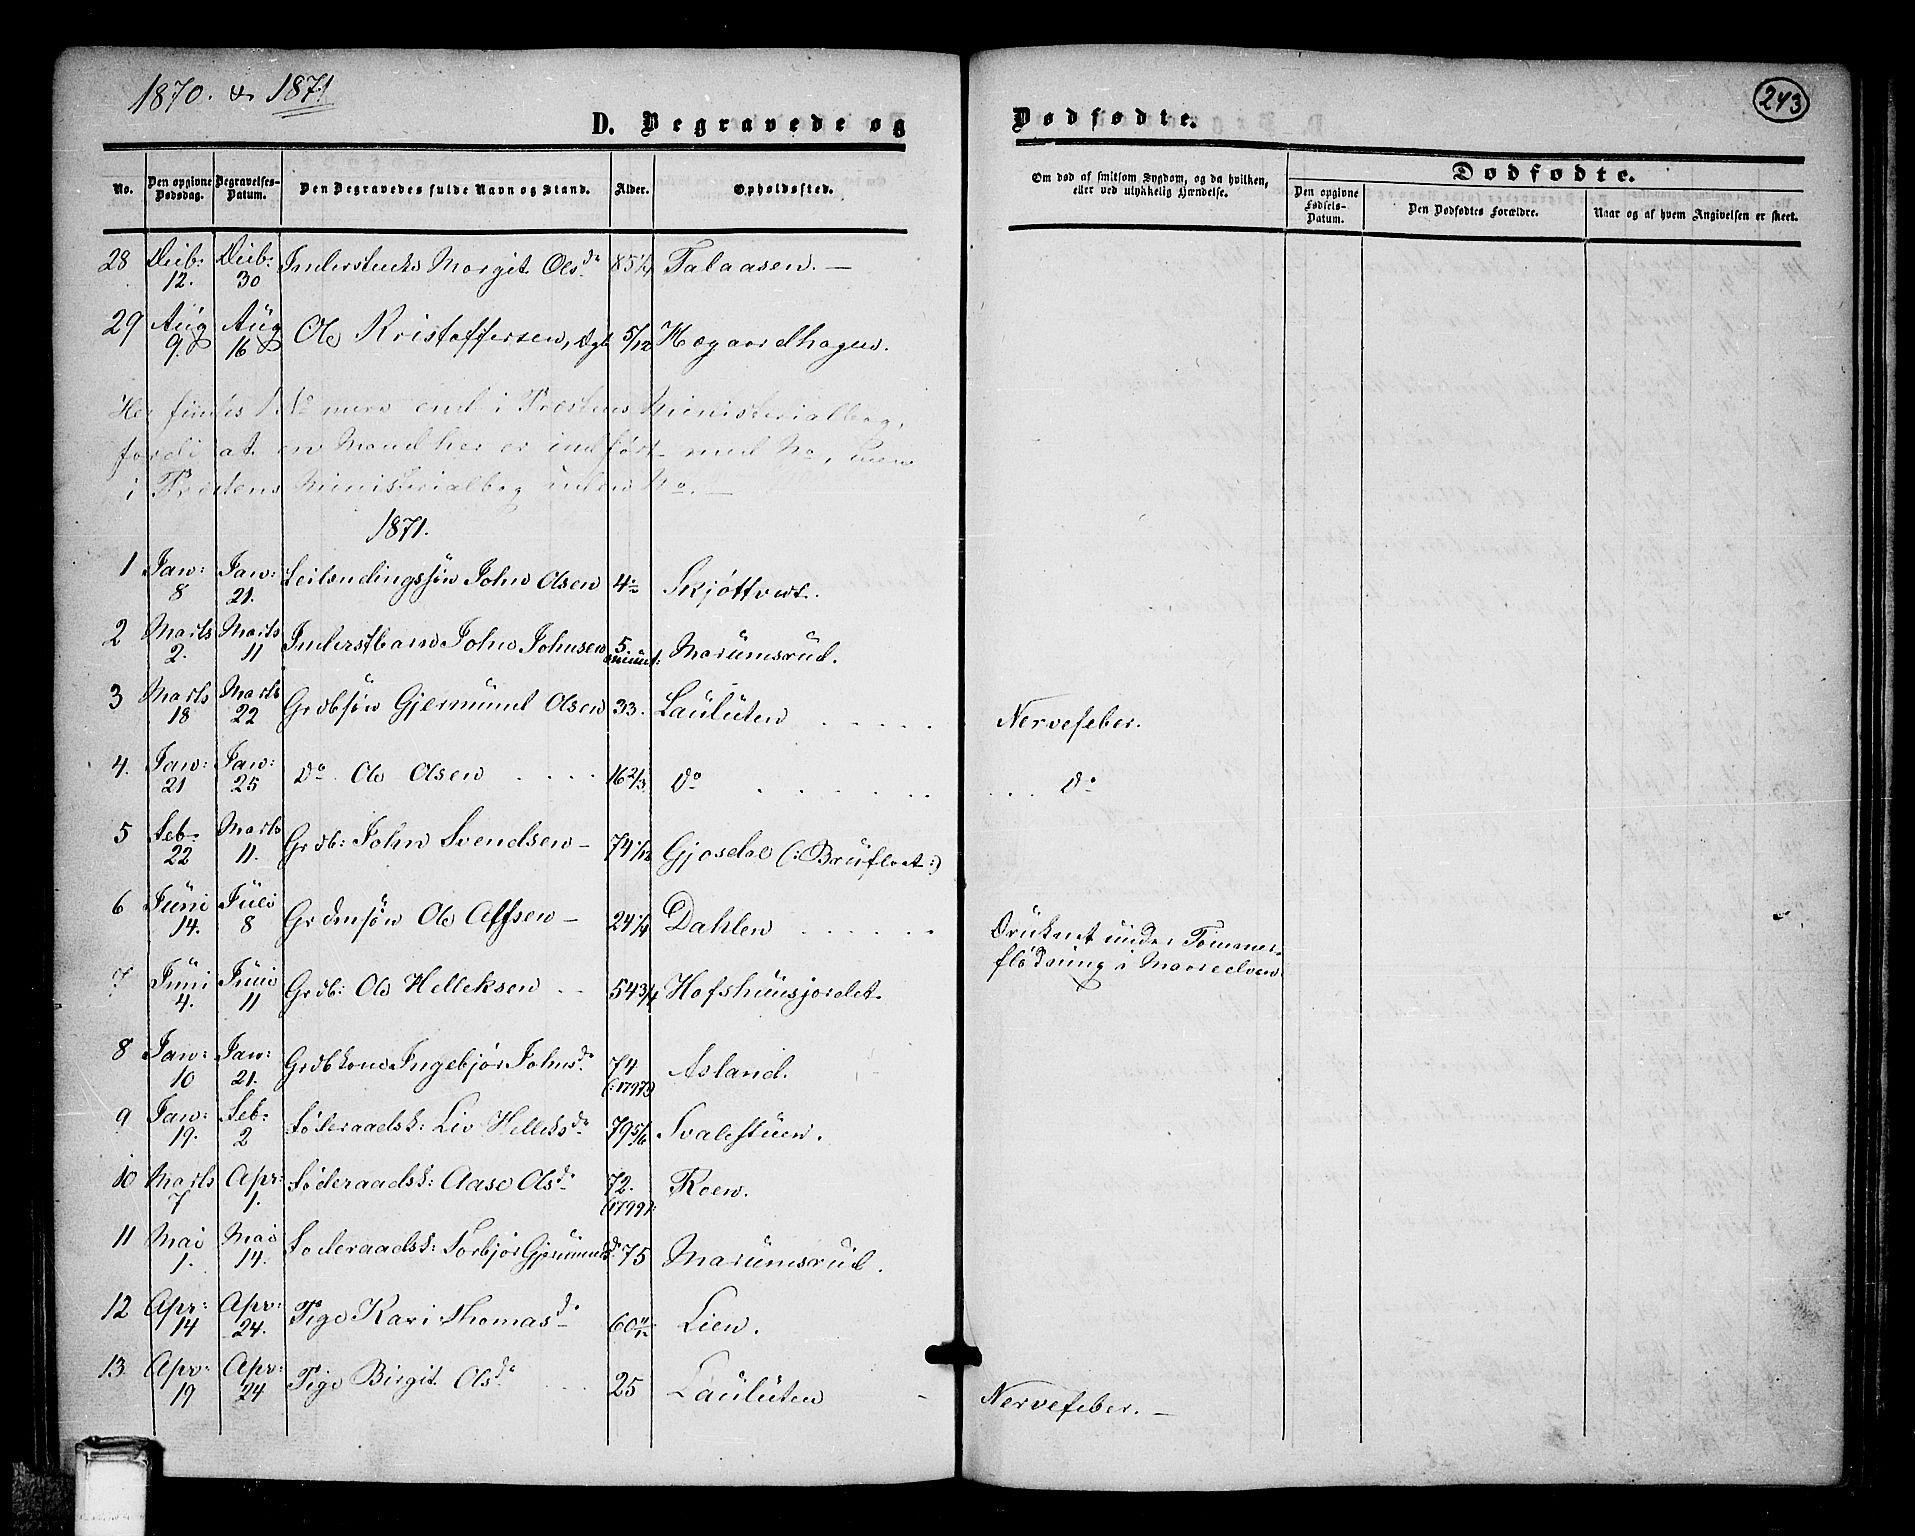 1870. & 1871
243
D. Begravede og Dødfødte.
No. Den opgivne Dødsdag. Begravelses-Datum. Den Begravedes fulde Navn og Stand. Alder. Opholdssted. Om død af smitsom Sygdom, og da hvilken, eller ved ulykkelig Hændelse. Dødfødte. Den opgivne Fødsels-Datum. Den Dødfødtes Forældre. Naar og af hvem Angivelsen er skeet.
28 12. 30 Margit Olsd. 85 1/4 Talaasen. —
29 Aug 9. Aug 16 Ole Kristoffersen, 5/12 Hægaardhagen.
Her findes 1 No mere end i Prestens Ministerialbog,
fordi at en Mand her er indført med No, men
i Prestens Ministerialbog uden No. —
1871.
1 Jan: 8 Jan: 21. Leilendingssøn John Olsen Skjøttveit.
2 Marts 2. Marts 11 Inderstbarn John Johnsen 5 minut: Marumsrud.
3 Marts 18 Marts 22 Grdbsøn Gjermund Olsen 33. Lauluten . . . . . Nervefeber.
4. Jan: 21 Jan: 25 Do Ole Olsen . . . . 16 2/3 Do . . . . . . . . . Do
5 Feb. 22 Marts 11. Grdb: John Svendsen — 74 1/12 Gjosdal (: Brufloet :)
6 Juni 14. Juli 8 Grdmsøn Ole Alfsen — 24 1/4 Dahlen . . . . . . Druknet under Tømmer-
fløtning i Maareelven.
7 Juni 4. Juni 11 Grdb: Ole Helleksen . . 54 3/4 Hofshuusjordet.
8 Jan: 10 Jan: 21. Grdbkone Ingebjør Johnsd. 74 (: 1797:) Asland.
9 Jan: 19. Feb: 2 Føderaadsk: Liv Helleksd. 79 5/6 Svalestuen.
10 Marts 7 Apr: 1. Føderaadsk: Aase Olsd. 72. (1799): Roen.
11 Mai 1. Mai 14. Føderaadsk: Torbjør Gjermundsd. 75 Marumsrud.
12 Apr: 14 Apr: 24. Pige Kari Thomasd. 60 11/12 Lien.
13. Apr: 19 Apr: 24 Pige Birgit Olsd. . . . 25 Lauluten — Nervefeber. —